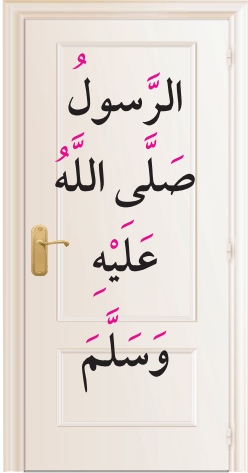 الرَّسولُ
صَلَّى اللَّهُ
عَلَيْهِ
وَسَلَّمَ